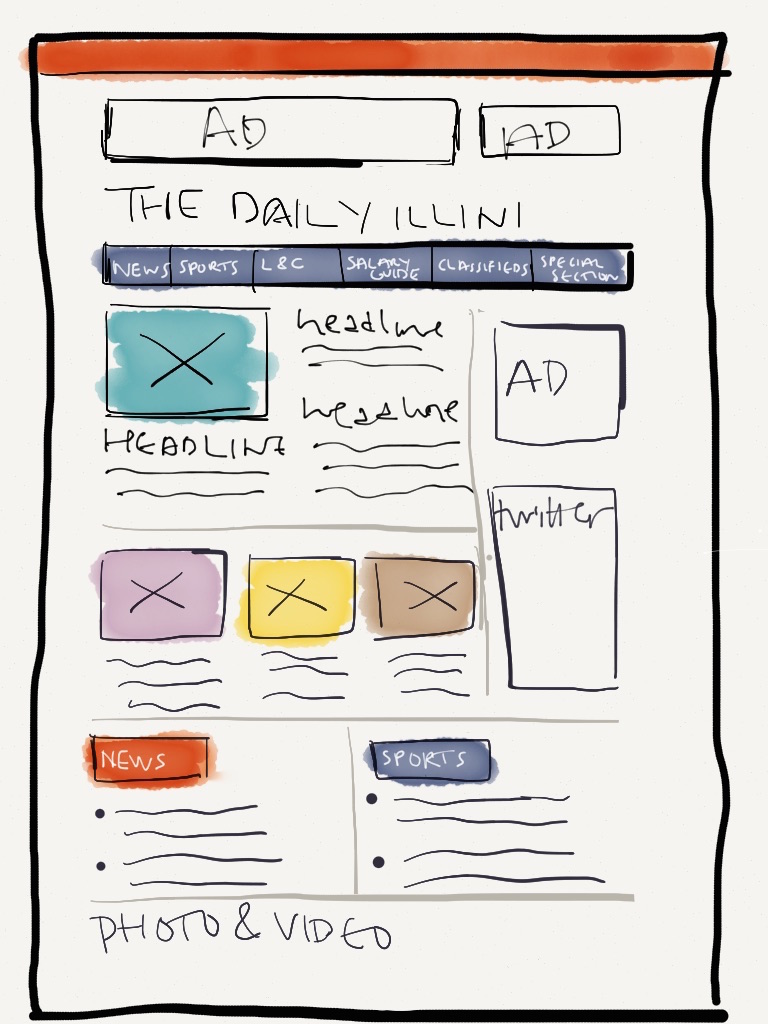 AD
AD
THE DAILY ILLINI
NEWS SPORTS L&C SALARY GUIDE CLASSIFIEDS SPECIAL SECTION
headline
headline
HEADLINE
AD
twitter
NEWS
SPORTS
PHOTO & VIDEO